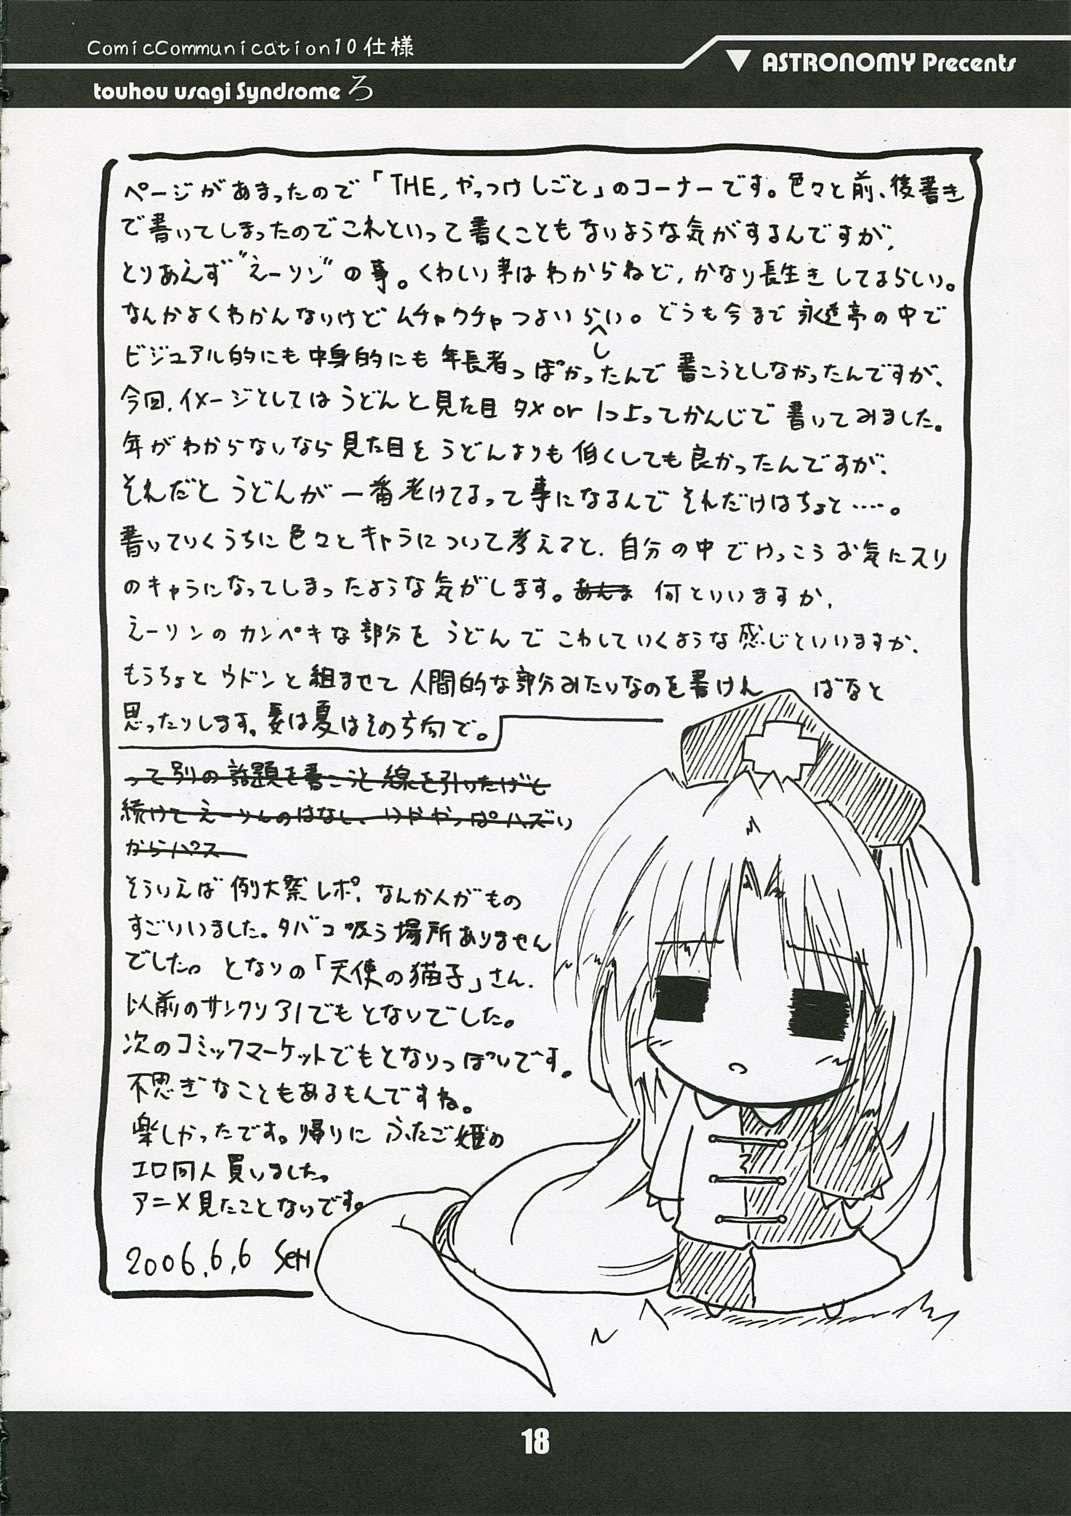 ComicCommunication10仕様
▼ ASTRONOMY Precents
touhou usagi Syndrome ろ
ページがあまったので「THE,やっつけしごと」のコーナーです。色々と前、後書き
で書いてしまったのでこれといって書くこともないような気がするんですが、
とりあえず"えーりん"の事。くわしい事はわからねど、かなり長生きしてるらしい。
なんかよくわかんないけどムチャクチャつよいらしい。どうも今まで永遠亭の中で
ビジュアル的にも中身的にも年長者っぽかったんで書こうとしなかったんですが、
今回、イメージとしてはうどんと見た目タメor1つ上ってかんじで書いてみました。
年がわからないなら見た目をうどんよりも低くしても良かったんですが、
それだとうどんが一番老けてるって事になるんでそれだけはちょと……。
書いていくうちに色々とキャラについて考えてと、自分の中でけっこうお気にスリ
のキャラになってしまったような気がします。あんま 何といいますか、
えーリンのカンペキな部分をうどんでこわしていくような感じといいますか、
もうちょとウドンと組ませて人間的な部分みたいなのを書けん ばなと
思ったりします。妻は夏はその方向で。
って別の話題を書こうと線を引いたけど
続けてえーりんのはなし、いややっぱハズい
からパス
そういえば例大祭レポ、なんか人がもの
すごいいました。タバコ吸う場所ありません
でした。となりの「天使の猫子」さん、
以前のサンクリ31でもとなりでした。
次のコミックマーケットでもとなりっぽいです。
不思ぎなこともあるもんですね。
楽しかったです。帰りにふたご姫の
エロ同人買いました。
アニメ見たことないです。
2006,6,6 SeN
18